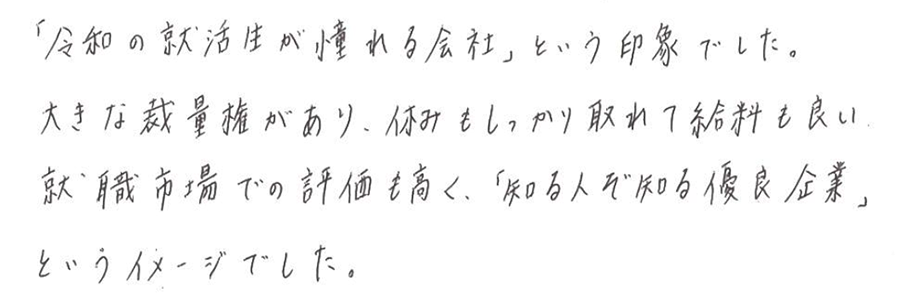 「令和の就活生が憧れる会社」という印象でした。
大きな裁量権があり、休みもしっかり取れて給料も良い
就職市場での評価も高く、「知る人ぞ知る優良企業」
というイメージでした。